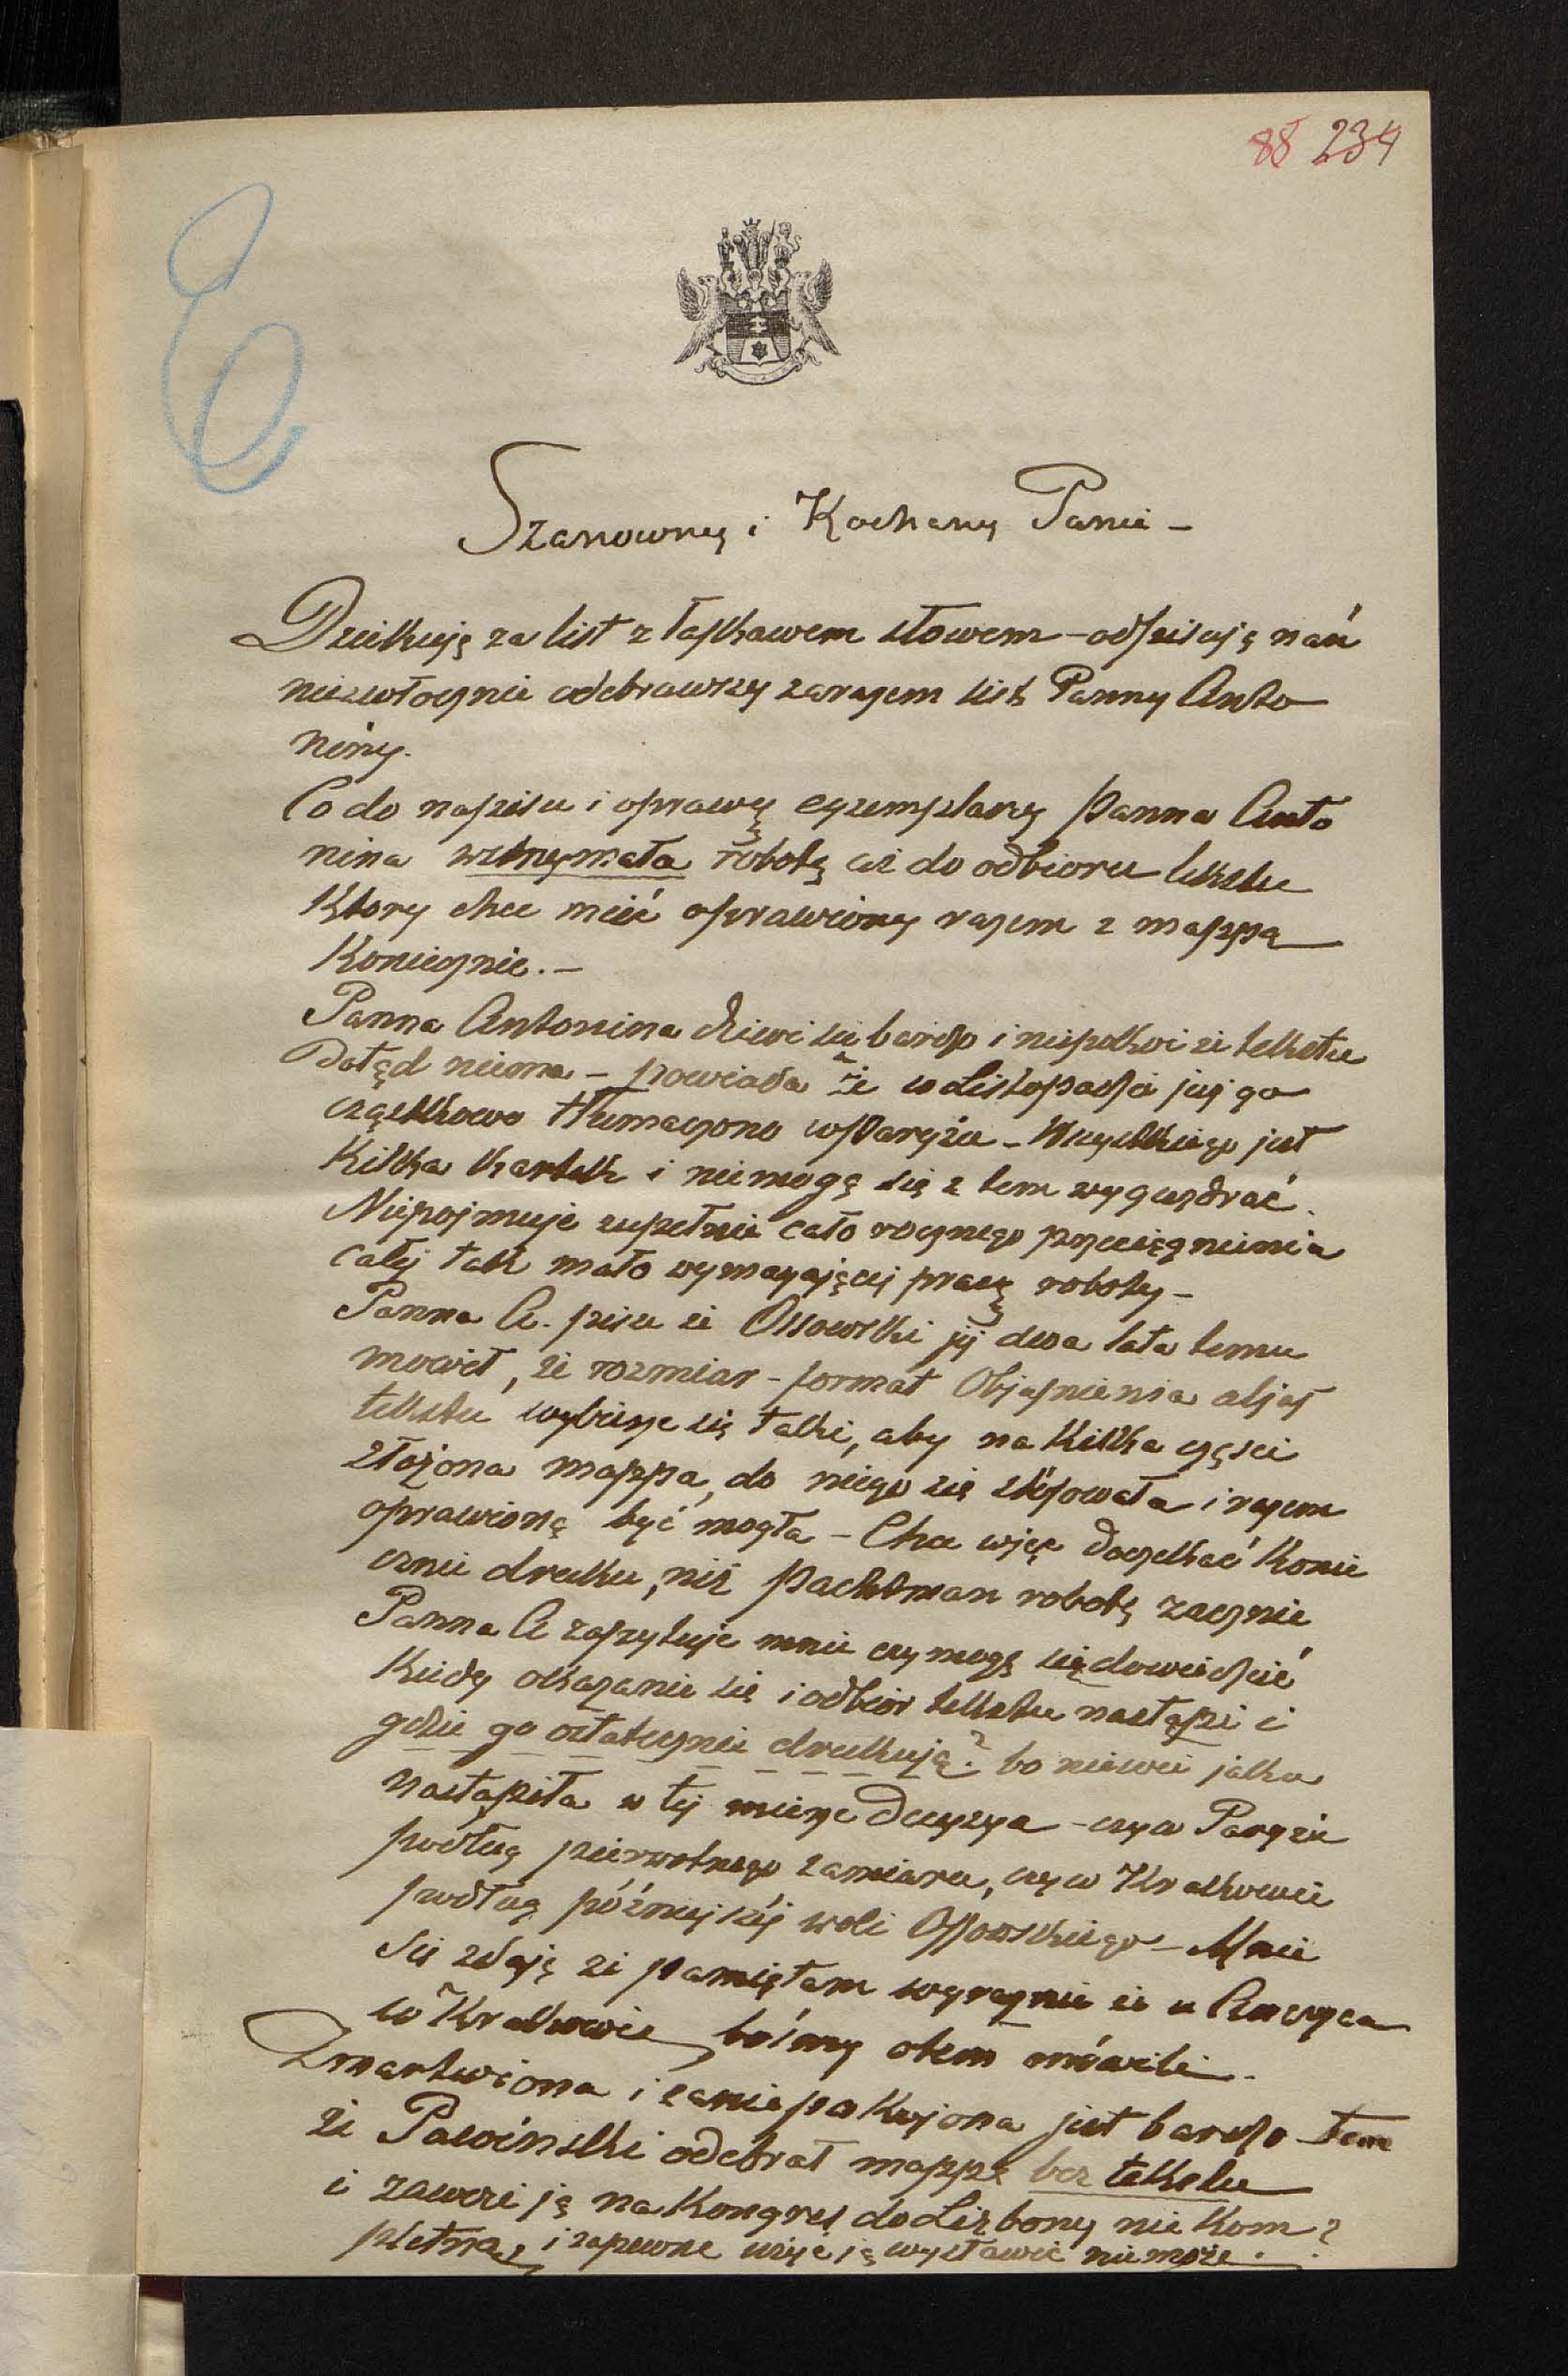 88 234
Szanowny i Kochany Panie –
Dziękuję za list z łaskawem słowem – odpisuję nań
niezwłocznie odebrawszy zarazem list Panny Anto
niny.
Co do napisu i oprawy egzemplarzy Panna Anto
nina wstrzymała robotę aż do odbioru tekstu
Który chce mieć oprawiony razem z mappą
Koniecznie. –
Panna Antonina dziwi się bardzo i niepokoi że tekstu
Dotąd niema – powiada że w Listopadzie już go
cząstkowo tłumaczono w Paryżu – Wszystkiego jest
Kilka Kartek i niemogą się z tem wygrzdrać.
Niepojmuje zupełnie cało rocznego przeciągnienia
całej tak mało wymagającej pracy roboty –
Panna A. pisze że Ossowski jej dwa lata temu
mowił, że rozmiar – format Objaśnienia aljas
tekstu wybierze się taki, aby na Kilka części
złożona mappa, do niego się stósowała i razem
oprawioną być mogła – Chce więc doczekać Konie
cznie druku, niż Pachtman robotę zacznie
Panna A zapytuje mnie czy mogę się dowiedzieć
Kiedy okazanie się i odbiór tekstu nastąpi i
gdzie go ostatecznie drukują? bo niewie jaka
nastąpiła w tej mierze Decyzya – czy w Paryżu
podług pierwotnego zamiaru, czy w Krakowie
podług późniejszej woli Ossowskiego – Mnie
się zdaję że pamiętam wyraznie że u Anczyca
w Krakowie, bośmy otem mówili.
Zmartwiona i zaniepokojona jest bardzo tem
że Pawiński odebrał mappę bez tekstu
i zawozi ją na Kongres do Lizbony nie Kom?
pletną, i zapewne użyć ją wystawić niemoże.